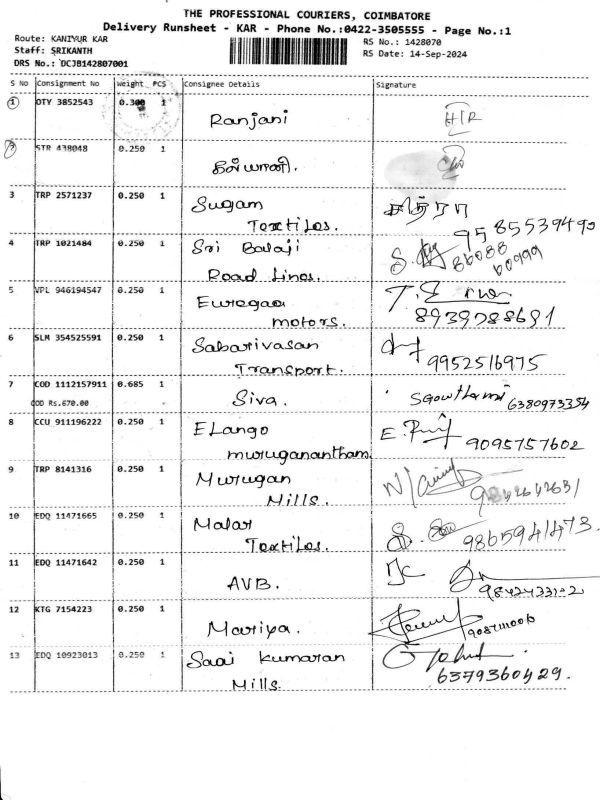 THE PROFESSIONAL COURIERS, COIMBATORE
Delivery Runsheet - KAR - Phone No.:0422-3505555 - Page No.:1
Route: KANIYUR KAR
RS No.: 1428070
Staff: SRIKANTH
RS Date: 14-Sep-2024
DRS No.: DCJB142807001
S No Consignment No Weight PCS Consignee Details Signature
1 OTY 3852543 0.300 1 Ranjani H/R
2 STR 438048 0.250 1 கல்யாணி.
3 TRP 2571237 0.250 1 Sugam
Textiles. சித்ரா 9585539490
4 TRP 1021484 0.250 1 Sri Balaji
Road Lines. 86088
60999
5 VPL 946194547 0.250 1 Euregaa
motors. 8939788691
6 SLM 354525591 0.250 1 Sabarivasan
Transport. 9952516975
7 COD 1112157911 0.685 1 Siva. Sgowthami 6380973354
COD Rs.670.00
8 CCU 911196222 0.250 1 Elango
muruganantham. 9095757602
9 TRP 8141316 0.250 1 Murugan
Mills.
10 EDQ 11471665 0.250 1 Malar
Textiles. 9865941473.
11 EDQ 11471642 0.250 1 AVB.
12 KTG 7154223 0.250 1 Mariya.
13 EDQ 10923013 0.250 1 Saai kumaran
Mills. 6379360429.